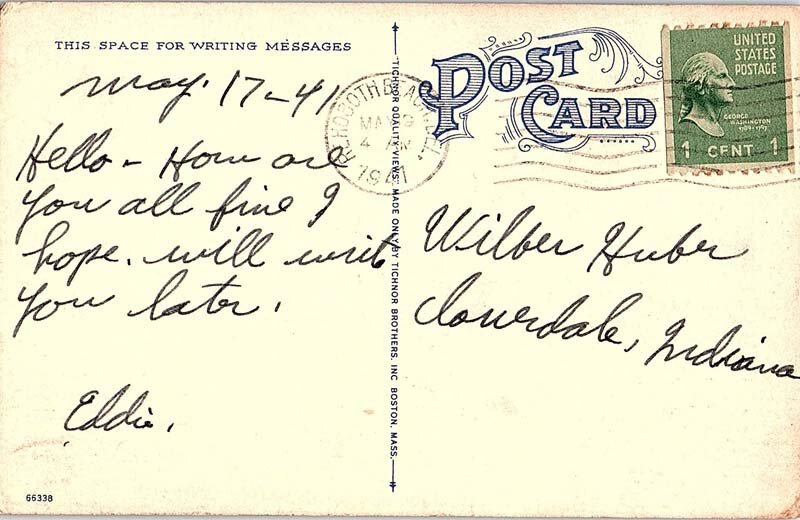 THIS SPACE FOR WRITING MESSAGES
May. 17-41
Hello - How are
you all fine I
hope. will writ
you later.
Eddie.
66338
TICHNOR QUALITY VIEWS, MADE ONLY BY TICHNOR BROTHERS, INC BOSTON, MASS.
POST CARD
REHOBOTH BEACH, DEL.
MAY
4 AM
1941
UNITED
STATES
POSTAGE
GEORGE
WASHINGTON
1789-1797
1 CENT 1
Wilber Huber
Cloverdale, Indiana